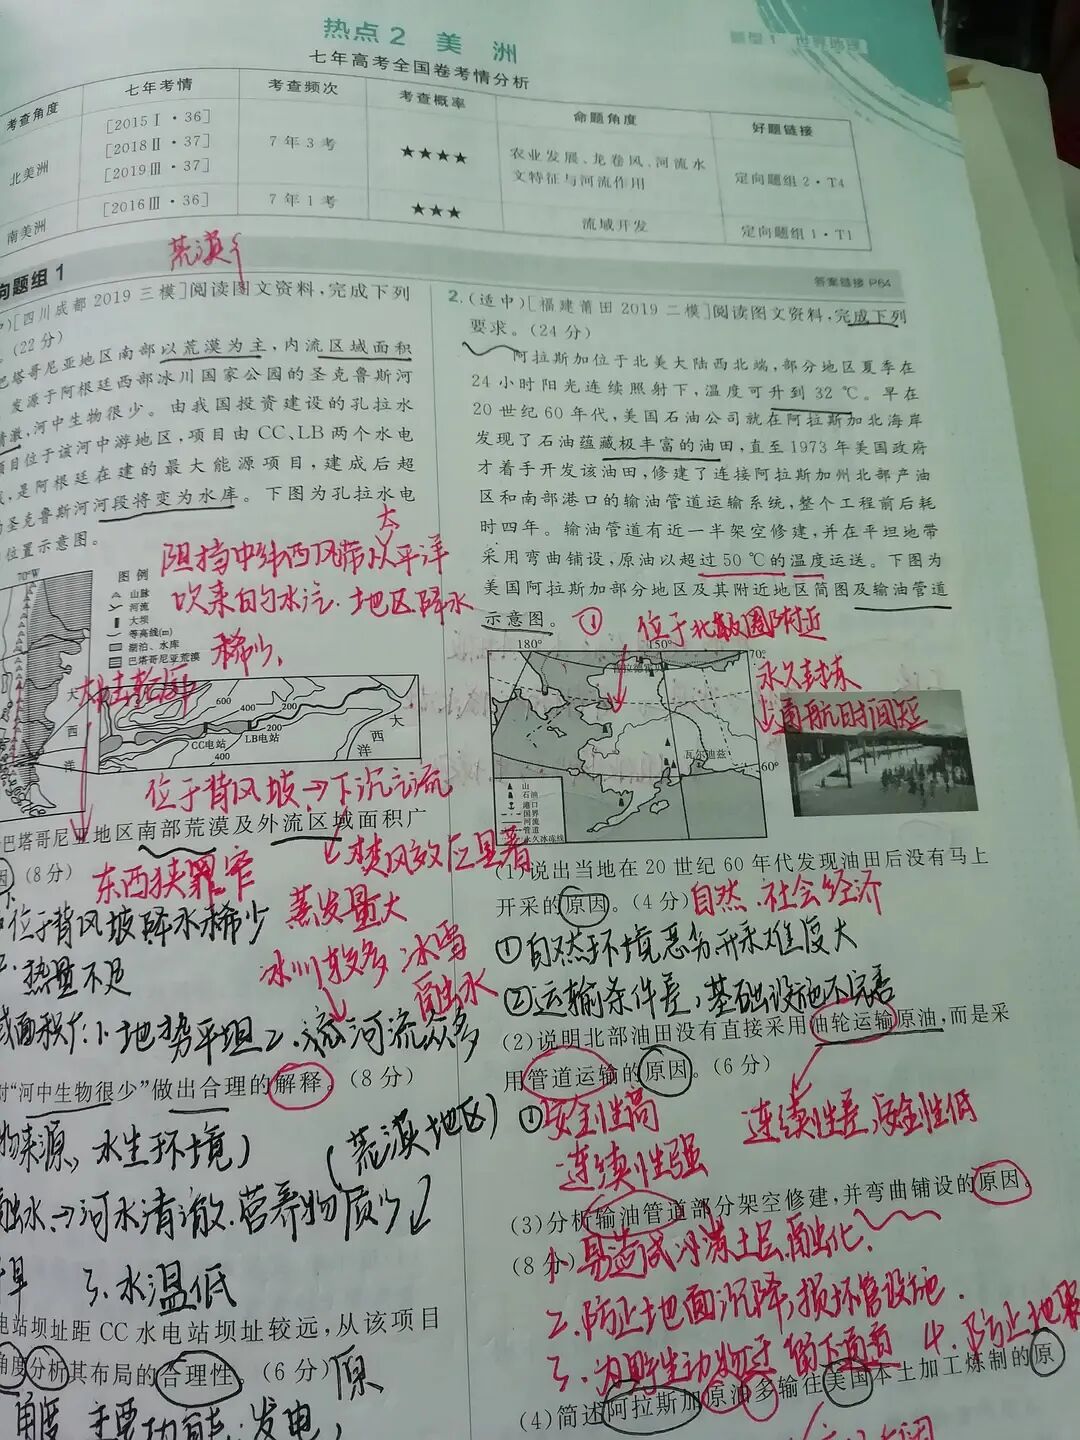 热点2 美洲
题型1 世界地理
七年高考全国卷考情分析
考查角度 七年考情 考查频次 考查概率 命题角度 好题链接
北美洲 [2015Ⅰ·36] [2018Ⅱ·37] [2019Ⅲ·37] 7年3考 ★★★★ 农业发展、龙卷风、河流水文特征与河流作用 定向题组2·T4
南美洲 [2016Ⅲ·36] 7年1考 ★★★ 流域开发 定向题组1·T1
荒漠
向题组1
答案链接P64
[四川成都2019三模]阅读图文资料,完成下列
。(22分)
巴塔哥尼亚地区南部以荒漠为主,内流区域面积
。发源于阿根廷西部冰川国家公园的圣克鲁斯河
清澈,河中生物很少。由我国投资建设的孔拉水
项目位于该河中游地区,项目由CC、LB两个水电
,是阿根廷在建的最大能源项目,建成后超
圣克鲁斯河河段将变为水库。下图为孔拉水电
位置示意图。
阻挡中纬西风带从太平洋
吹来的水汽.地区降水
稀少,
70°W
图例
山脉
河流
大坝
等高线(m)
湖泊、水库
巴塔哥尼亚荒漠
大西洋
600
400
200
200
400
CC电站
LB电站
大西洋
位于背风坡→下沉气流
焚风效应显著
巴塔哥尼亚地区南部荒漠及外流区域面积广
因(8分)
东西狭窄
蒸发量大
位于背风坡降水稀少
热量不足
冰川较多 冰雪
融水
域面积广:1.地势平坦2.河流众多
对“河中生物很少”做出合理的解释。(8分)
物来源,水生环境)
(荒漠地区)
融水→河水清澈.营养物质少
3.水温低
电站坝址距CC水电站坝址较远,从该项目
角度分析其布局的合理性。(6分)
原
角度 主要功能:发电,
2.(适中)[福建莆田2019二模]阅读图文资料,完成下列
要求。(24分)
阿拉斯加位于北美大陆西北端,部分地区夏季在
24小时阳光连续照射下,温度可升到32℃。早在
20世纪60年代,美国石油公司就在阿拉斯加北海岸
发现了石油蕴藏极丰富的油田,直至1973年美国政府
才着手开发该油田,修建了连接阿拉斯加州北部产油
区和南部港口的输油管道运输系统,整个工程前后耗
时四年。输油管道有近一半架空修建,并在平坦地带
采用弯曲铺设,原油以超过50℃的温度运送。下图为
美国阿拉斯加部分地区及其附近地区简图及输油管道
示意图。
① 位于北极圈附近
永久封冻
通航时间短
180°
150°
70°
60°
瓦尔迪兹
山
石油
港口
国界
河流
管道
永久冰冻线
(1)说出当地在20世纪60年代发现油田后没有马上
开采的原因。(4分)
自然.社会经济
①自然环境恶劣开采难度大
②运输条件差,基础设施不完善
(2)说明北部油田没有直接采用油轮运输原油,而是采
用管道运输的原因。(6分)
①安全性高
连续性强
连续性差,安全性低
(3)分析输油管道部分架空修建,并弯曲铺设的原因。
(8分)
1.易造成冻土层融化,
2.防止地面沉降,损坏管设施.
3.为野生动物迁
4.防止地震
(4)简述阿拉斯加原油多输往美国本土加工炼制的原